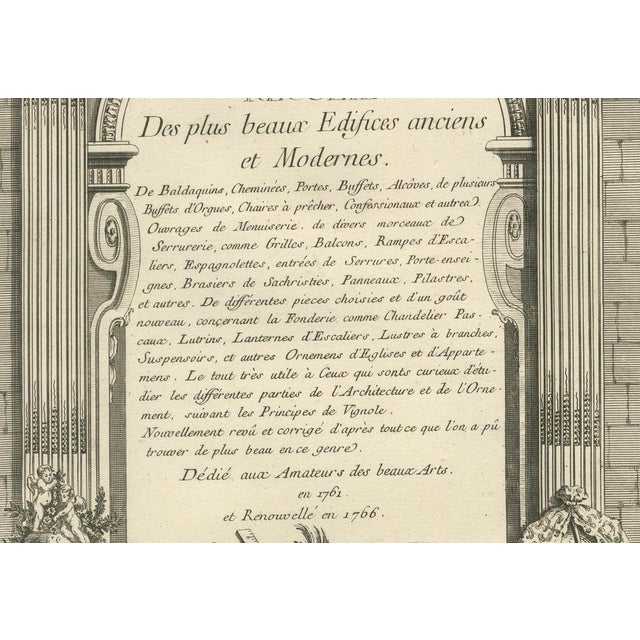 Des plus beaux Edifices anciens
et Modernes.
De Baldaquins, Cheminées, Portes, Buffets, Alcôves, de plusieurs
Buffets d'Orgues, Chaires à prêcher, Confessionaux et autres
Ouvrages de Menuiserie. de divers morceaux de
Serrurerie, comme Grilles, Balcons, Rampes d'Esca-
liers, Espagnolettes, entrées de Serrures, Porte-ensei-
gnes, Brasiers de Sachristies, Panneaux, Pilastres,
et autres. De différentes pieces choisies et d'un goût
nouveau, conçernant la Fonderie comme Chandelier Pas-
caux, Lutrins, Lanternes d'Escaliers, Lustres à branches,
Suspensoirs, et autres Ornemens d'Eglises et d'Apparte-
mens. Le tout très utile à Ceux qui sonts curieux d'étu-
dier les différentes parties de l'Architecture et de l'Orne-
ment, suivant les Principes de Vignole.
Nouvellement revû et corrigé d'après tout ce que l'on a pû
trouver de plus beau en ce genre.
Dédié aux Amateurs des beaux Arts.
en 1761.
et Renouvellé en 1766.